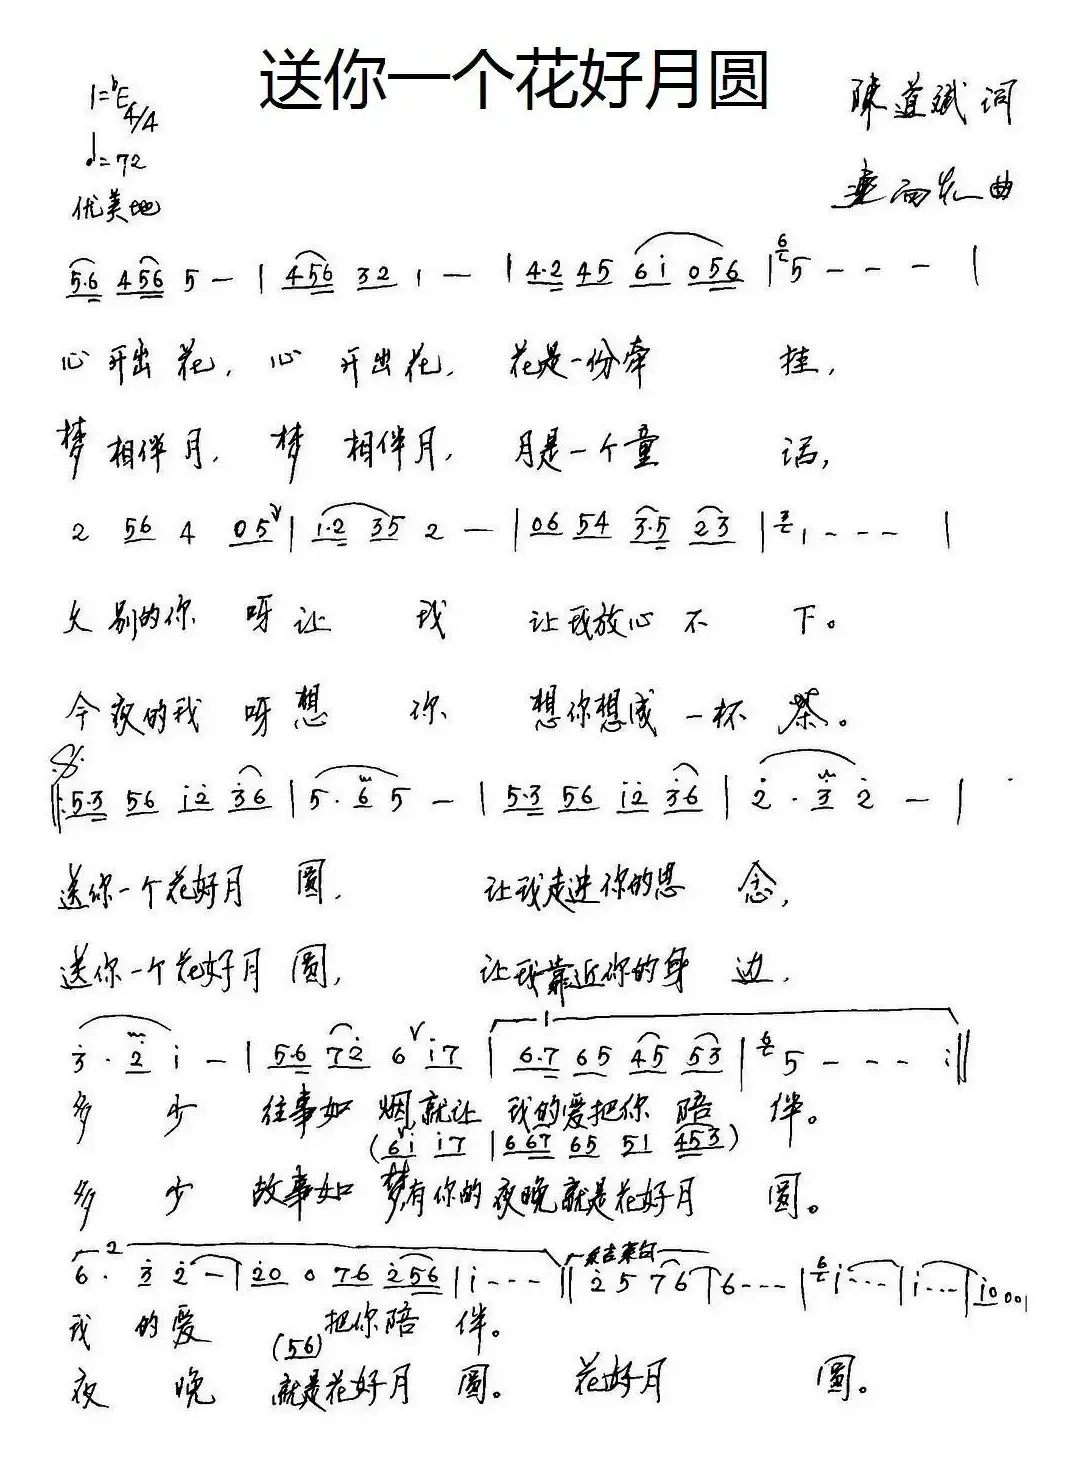 送你一个花好月圆
1=♭E 4/4
陳道斌 词
♩=72
曲
优美地
5·6 456 5 — | 456 32 1 — | 4·2 45 6i 056 | 5 - - - |
心开出花, 心开出花, 花是一份牵挂,
梦相伴月, 梦相伴月, 月是一个童话,
2 56 4 05 | 1·2 35 2 — | 06 54 3·5 23 | 1 - - - |
久别的你呀让我 让我放心不下。
今夜的我呀想你 想你想成一杯茶。
‖: 5·3 56 i2̇ 3̇6 | 5· 6 5 — | 5·3 56 i2̇ 3̇6 | 2̇· 3̇ 2̇ — |
送你一个花好月圆, 让我走进你的思念,
送你一个花好月圆, 让我靠近你的身边,
3̇· 2̇ i — | 5·6 72̇ 6 i7 | 1 6·7 65 45 53 | 5 - - - :‖
多少往事如烟就让我的爱把你陪伴。
(6i i7 | 667 65 51 453)
多少故事如梦,有你的夜晚就是花好月圆。
2 6· 3̇ 2̇ — | 2̇0 0 76 2̇56 | i - - - ‖ 结束句 2̇ 5 7 6 | 6 - - - | i - - - | i - - - | i0 0 0 |
我的爱 把你陪伴。
(56)
夜晚就是花好月圆。 花好月圆。